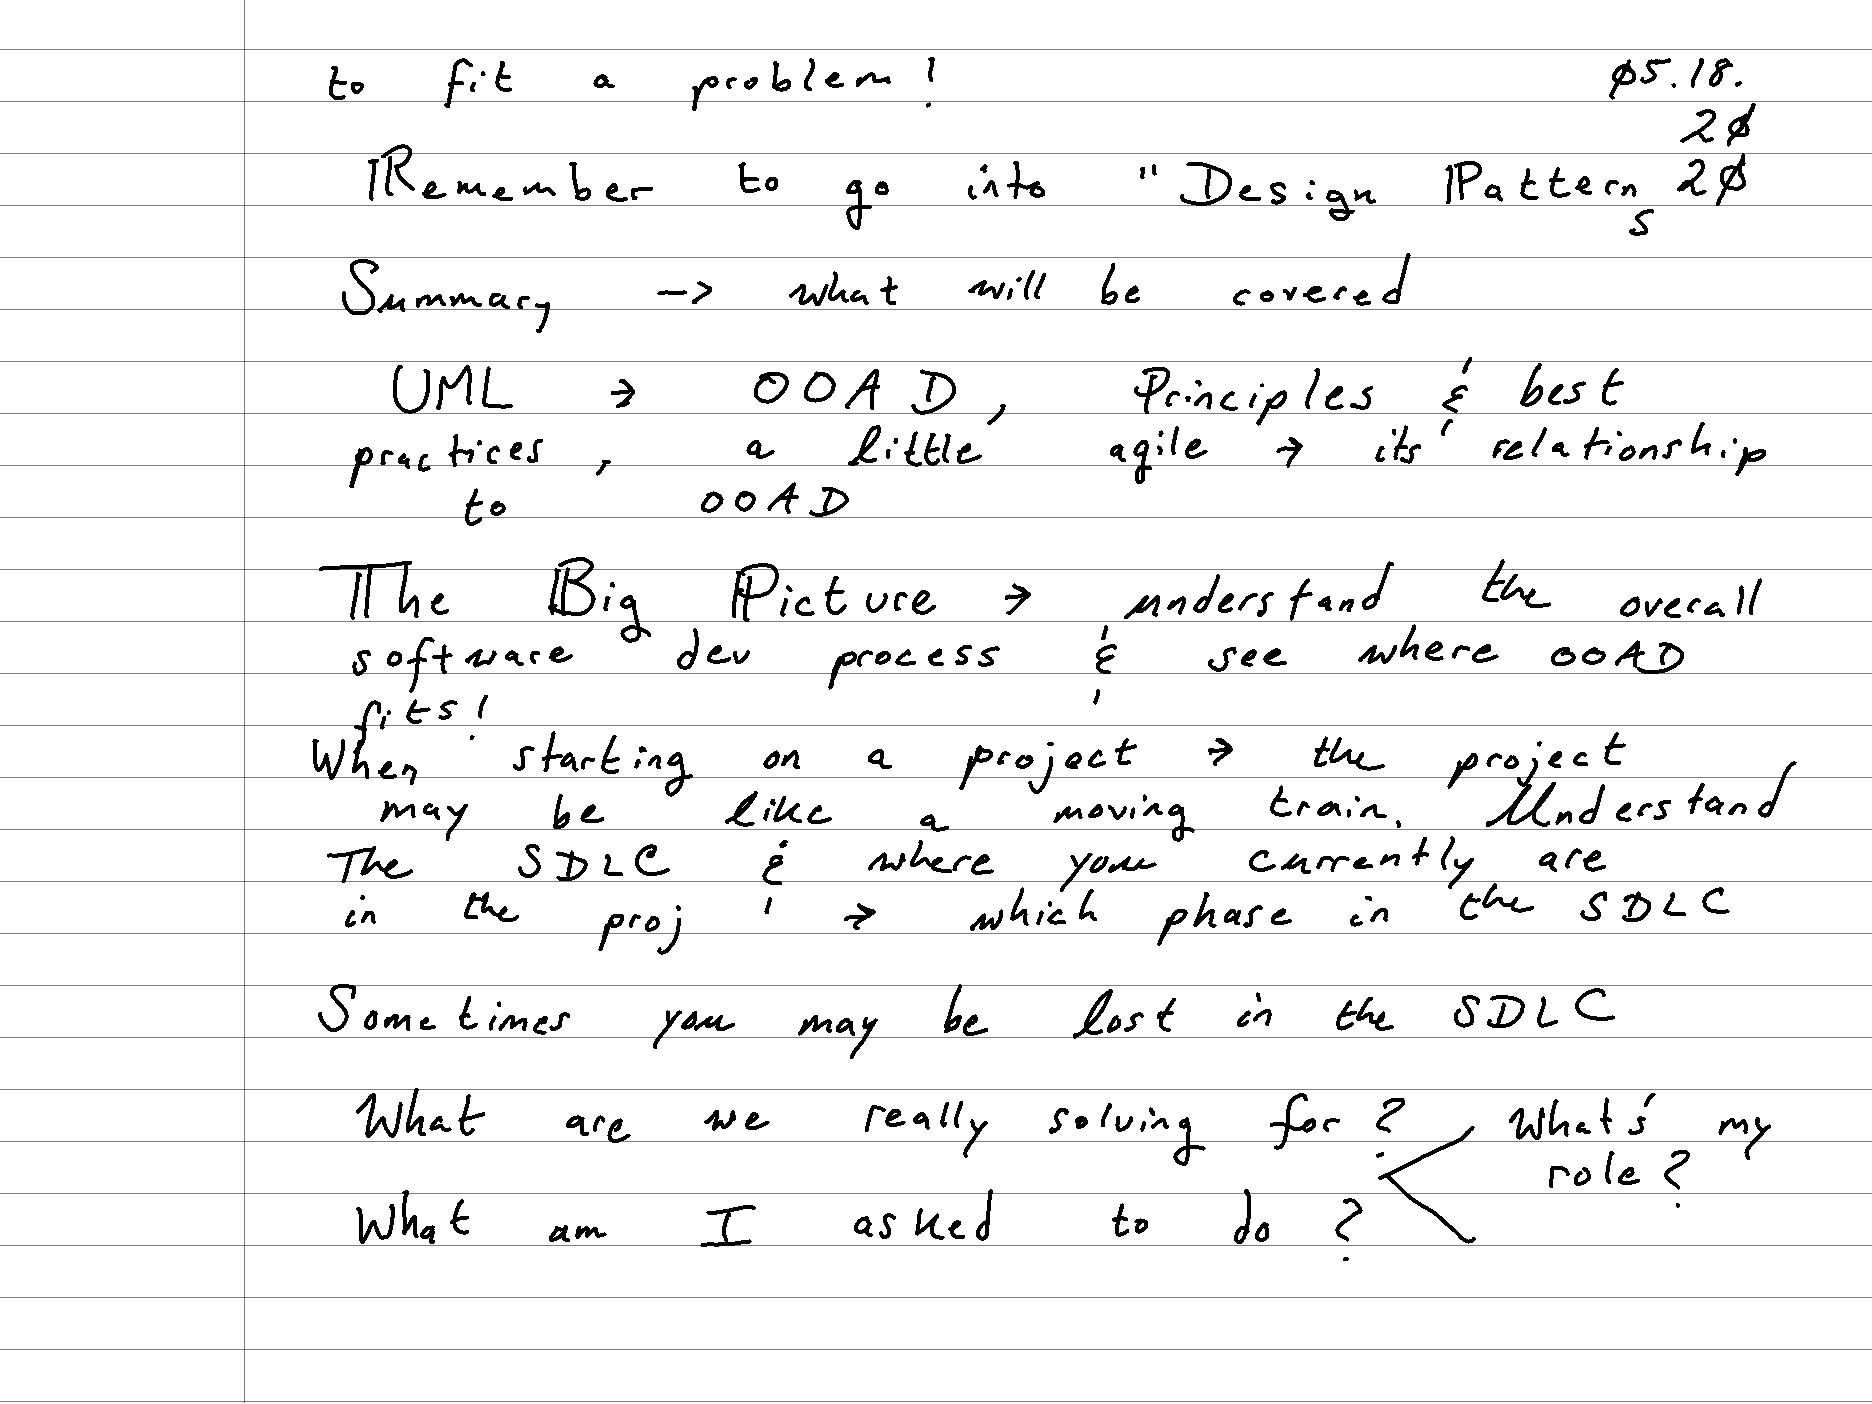 to fit a problem!
05.18.
20
20
Remember to go into "Design Patterns
Summary -> what will be covered
UML → OOAD, Principles & best
practices, a little agile → its' relationship
to OOAD
The Big Picture → understand the overall
software dev process & see where OOAD
fits!
When starting on a project → the project
may be like a moving train. Understand
The SDLC & where you currently are
in the proj → which phase in the SDLC
Sometimes you may be lost in the SDLC
What are we really solving for?
What's my
role?
What am I asked to do?